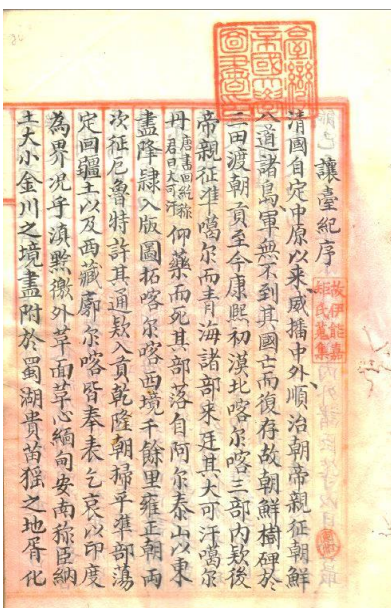 臺灣帝國大學圖書印
故伊能嘉矩氏蒐集
讓臺紀序
清國自定中原以來威播中外順治朝帝親征朝鮮
八道諸島軍無不到其國亡而復存故朝鮮樹碑於
三田渡朝貢至今康熙初漠北喀尔喀三部內欵後
帝親征准噶尔而青海諸部来廷其大可汗噶尔
丹唐書回紇称君曰大可汗仰藥而死其部落自阿尔泰山以東
盡降隸入版圖拓喀尔喀西境千餘里雍正朝両
次征厄魯特許其通欵入貢乾隆朝掃平準部蕩
定回疆土以及西藏廓尔喀皆奉表乞哀以印度
為界況乎滇黔徼外革面革心緬甸安南称臣納
土大小金川之境盡附於蜀湖貴苗猺之地胥化